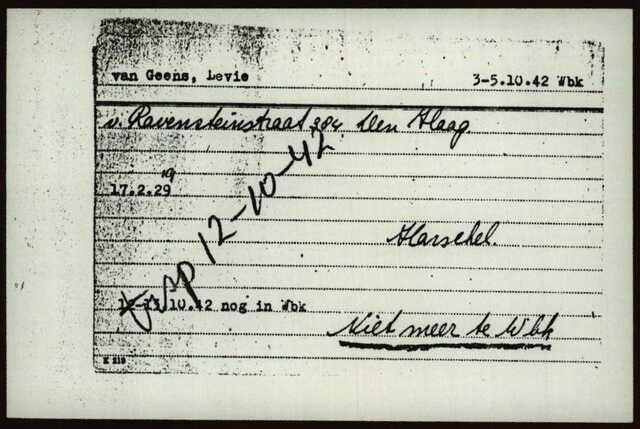 van Geens, Levie 3-5.10.42 Wbk
v. Ravensteinstraat 384 Den Haag
19
17.2.29
Exp 12-10-42
Harschel.
12-13.10.42 nog in Wbk
Niet meer te Wbk
K 219